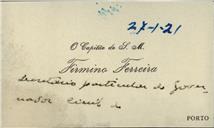 27-1-21
O Capitão de S. M.
Firmino Ferreira
secretario particular do Gover-
nador Civil do
PORTO